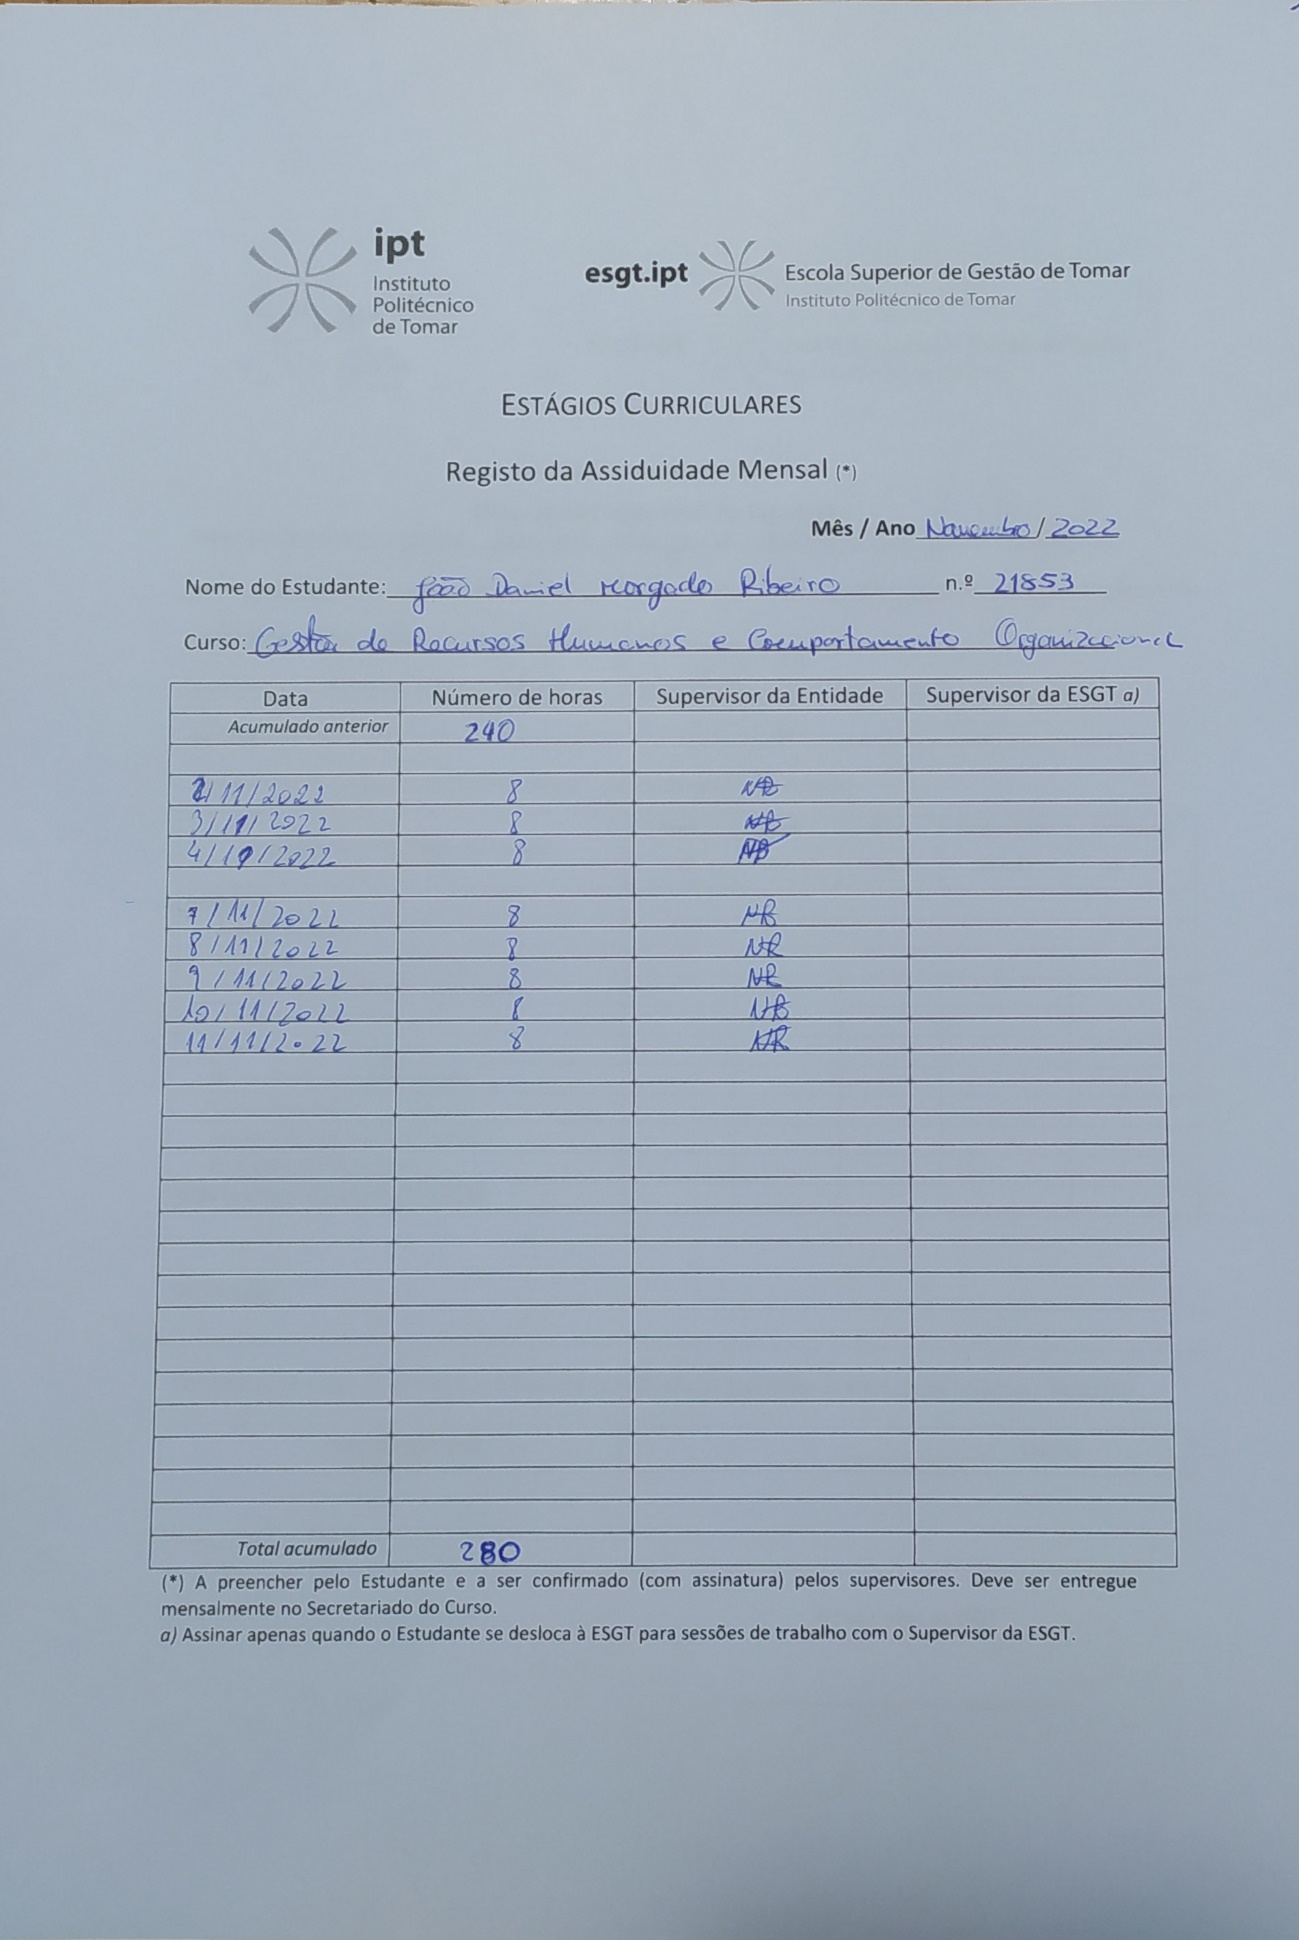 ipt
Instituto
Politécnico
de Tomar
esgt.ipt
Escola Superior de Gestão de Tomar
Instituto Politécnico de Tomar
ESTÁGIOS CURRICULARES
Registo da Assiduidade Mensal (*)
Mês / Ano Novembro / 2022
Nome do Estudante: João Daniel Morgado Ribeiro n.º 21853
Curso: Gestão de Recursos Humanos e Comportamento Organizacional
Data Número de horas Supervisor da Entidade Supervisor da ESGT a)
Acumulado anterior 240
2/11/2022 8
3/11/2022 8
4/10/2022 8
7/11/2022 8
8/11/2022 8 NR
9/11/2022 8 NR
10/11/2022 8
11/11/2022 8 NR
Total acumulado 280
(*) A preencher pelo Estudante e a ser confirmado (com assinatura) pelos supervisores. Deve ser entregue
mensalmente no Secretariado do Curso.
a) Assinar apenas quando o Estudante se desloca à ESGT para sessões de trabalho com o Supervisor da ESGT.